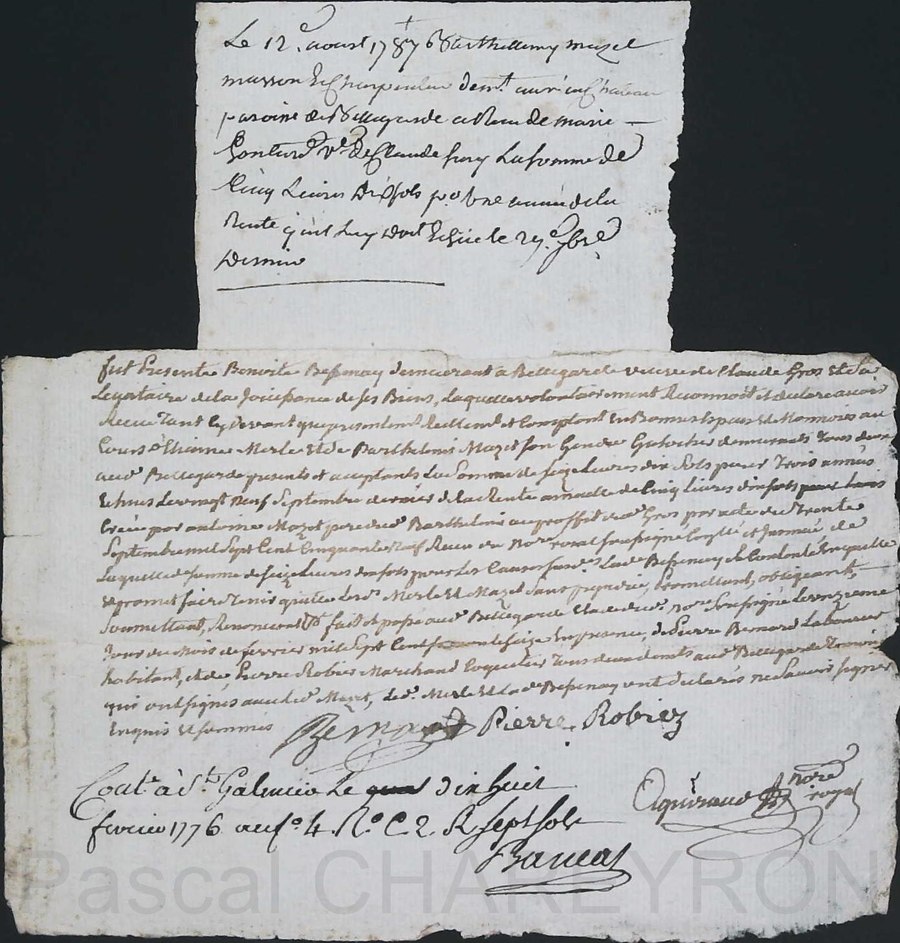 Le 12e. aoust 1787 Barthellemy mazel
masson & Charpentier
paroise de Bellegarde a de marie
ve. de Claude La somme de
Cinq Livres Dix sols pr. une année de la
Rente quil luy doit Echue le 29e. 7bre.
Dernier
fut Presente Benoite Bessenay demeurant a Bellegarde veuve de Claude Gros Et
Legataire de la Jouissance de ses Biens, Laquelle volontairement Reconnoit et declare avoir
Receu Tant Cy devant que presentement Reellement et Comptant En Bonnes Especes et Monnoies au
Cours d'Etienne Merle Et de Barthelemi Mazet son Gendre demeurants Tous deux
aud. Bellegarde presents et acceptants La Somme de seize Livres dix sols pour Trois années
Echues Le vingt Neuf Septembre dernier de la Rente annuelle de Cinq Livres dix sols
Creée par antoine Mazet pere dud. Barthelemi au proffit dud. Gros par acte du Trente
Septembre mil Sept Cent Cinquante Neuf Receu du Nore. royal soussigné Conllé et
Laquelle Somme de seize Livres dix sols pour Les Causes susd. Lad. Bessenay
Et promet faire Tenir quitte Lesd. Merle Et Mazet Sans prejudice, Promettant, obligeant,
Soumettant, Renonceant fait et passé aud. Bellegarde Etude dud. nore. Soussigné
Jour du Mois de fevrier mil Sept Cent soixante seize En presence, de Pierre Bernard Laboureur
habitant, et de Pierre Robier Marchand Tous deux aud. Bellegarde Temoins
qui ont signés avec led. Mazet, Led. Merle Et Lad. Bessenay ont declarés ne Savoir signer
Enquis Et sommés
Bernard Pierre Robier
Conte. à St. Galmier Le dix huit
fevrier 1776 au fo. 4. No. C. 2. R sept sols
nore
royal
Pascal CHAREYRON